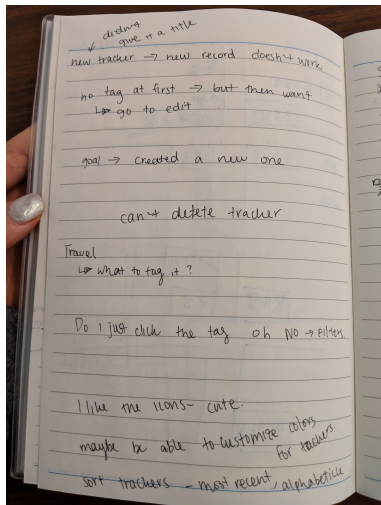 didn't
give it a title
new tracker → new record doesn't work.
no tag at first → but then want
↳ go to edit
goal → created a new one
can't delete tracker
Travel
↳ what to tag it?
Do I just click the tag oh NO → filters
I like the icons - cute.
maybe be able to customize colors
for trackers
sort trackers - most recent, alphabetical